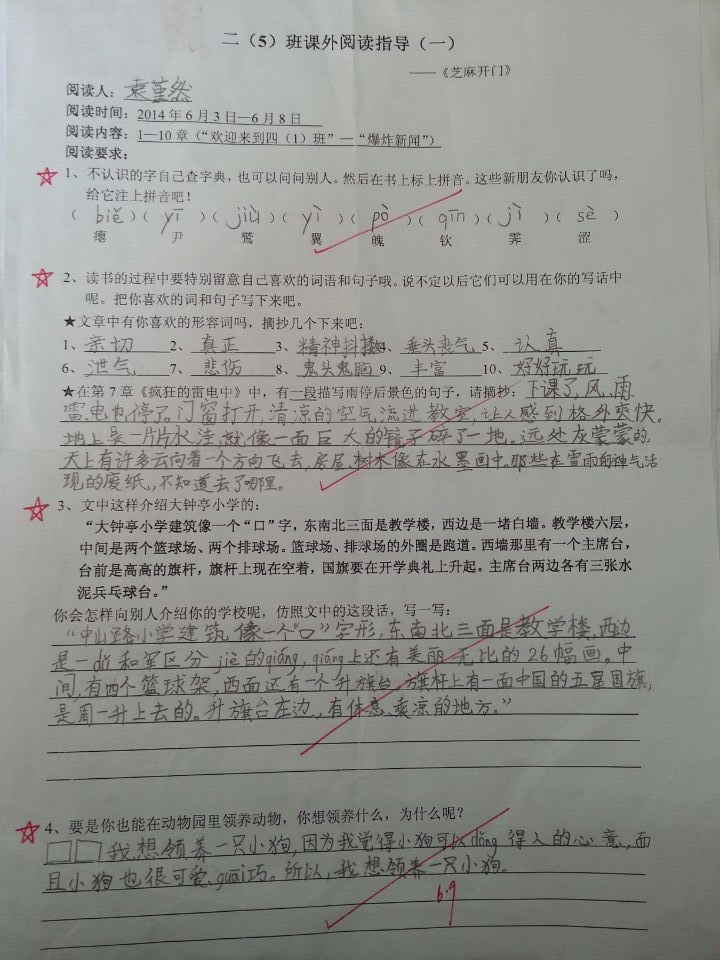 二（5）班课外阅读指导（一）
——《芝麻开门》
阅读人：袁堇然
阅读时间：2014年6月3日—6月8日
阅读内容：1—10章（“欢迎来到四（1）班”—“爆炸新闻”）
阅读要求：
1、不认识的字自己查字典，也可以问问别人。然后在书上标上拼音。这些新朋友你认识了吗，
给它注上拼音吧！
（biě）（yǐ）（jiù）（yì）（pò）（qīn）（jì）（sè）
瘪 尹 鹫 翼 魄 钦 霁 涩
2、读书的过程中要特别留意自己喜欢的词语和句子哦。说不定以后它们可以用在你的写话中
呢。把你喜欢的词和句子写下来吧。
★文章中有你喜欢的形容词吗，摘抄几个下来吧：
1、亲切 2、真正 3、精神抖擞 4、垂头丧气 5、认真
6、泄气 7、悲伤 8、鬼头鬼脑 9、丰富 10、好好玩玩
★在第7章《疯狂的雷电中》中，有一段描写雨停后景色的句子，请摘抄：下课了，风、雨、
雷、电也停了。门窗打开，清凉的空气流进教室，让人感到格外爽快。
地上是一片片水洼，就像一面巨大的镜子碎了一地。远处灰蒙蒙的
天上有许多云向着一个方向飞去，房屋、树木像在水墨画中。那些在雷雨前神气活
现的废纸，不知道去了哪里。
3、文中这样介绍大钟亭小学的：
“大钟亭小学建筑像一个“口”字，东南北三面是教学楼，西边是一堵白墙。教学楼六层，
中间是两个篮球场、两个排球场。篮球场、排球场的外圈是跑道。西墙那里有一个主席台，
台前是高高的旗杆，旗杆上现在空着，国旗要在开学典礼上升起。主席台两边各有三张水
泥乒乓球台。”
你会怎样向别人介绍你的学校呢，仿照文中的这段话，写一写：
“中山路小学建筑像一个“口”字形，东南北三面是教学楼、西边
是一dǔ和军区分jiè的qiáng，qiáng上还有美丽无比的26幅画。中
间，有四个篮球架，西面还有一个升旗台，旗杆上有一面中国的五星国旗，
是周一升上去的。升旗台左边，有休息、乘凉的地方。”
4、要是你也能在动物园里领养动物，你想领养什么，为什么呢？
我想领养一只小狗，因为我觉得小狗可以dǒng得人的心意，而
且小狗也很可爱、guāi巧。所以，我想领养一只小狗。
6.9